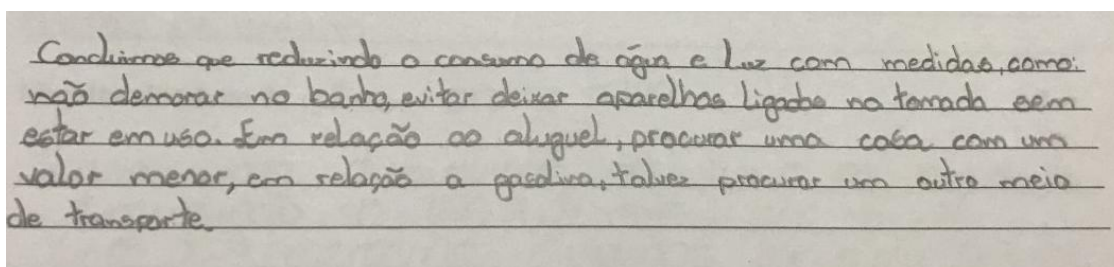 Concluimos que reduzindo o consumo de água e luz com medidas, como:
não demorar no banho, evitar deixar aparelhos ligados na tomada sem
estar em uso. Em relação ao aluguel, procurar uma casa com um
valor menor, em relação a gasolina, talvez procurar um outro meio
de transporte.